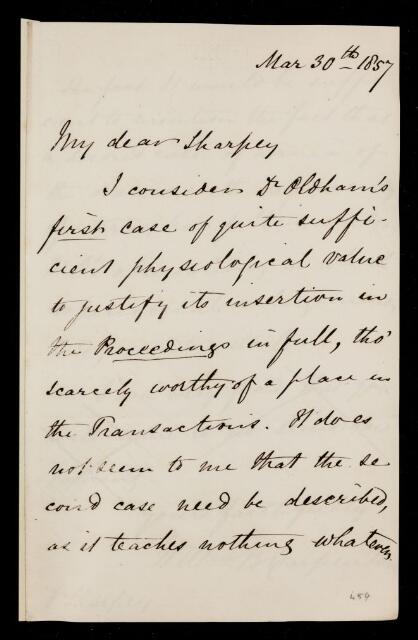 Mar 30th 1857
My dear Sharpey
I consider Dr Oldham's
first case of quite suffi-
cient physiological value
to justify its insertion in
the Proceedings in full, tho'
scarcely worthy of a place in
the Transactions. It does
not seem to me that the se
cond case need be described,
as it teaches nothing whatever
454